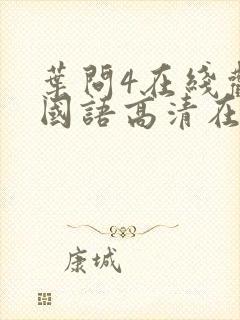 葉問4在綫
國語高清在
康城